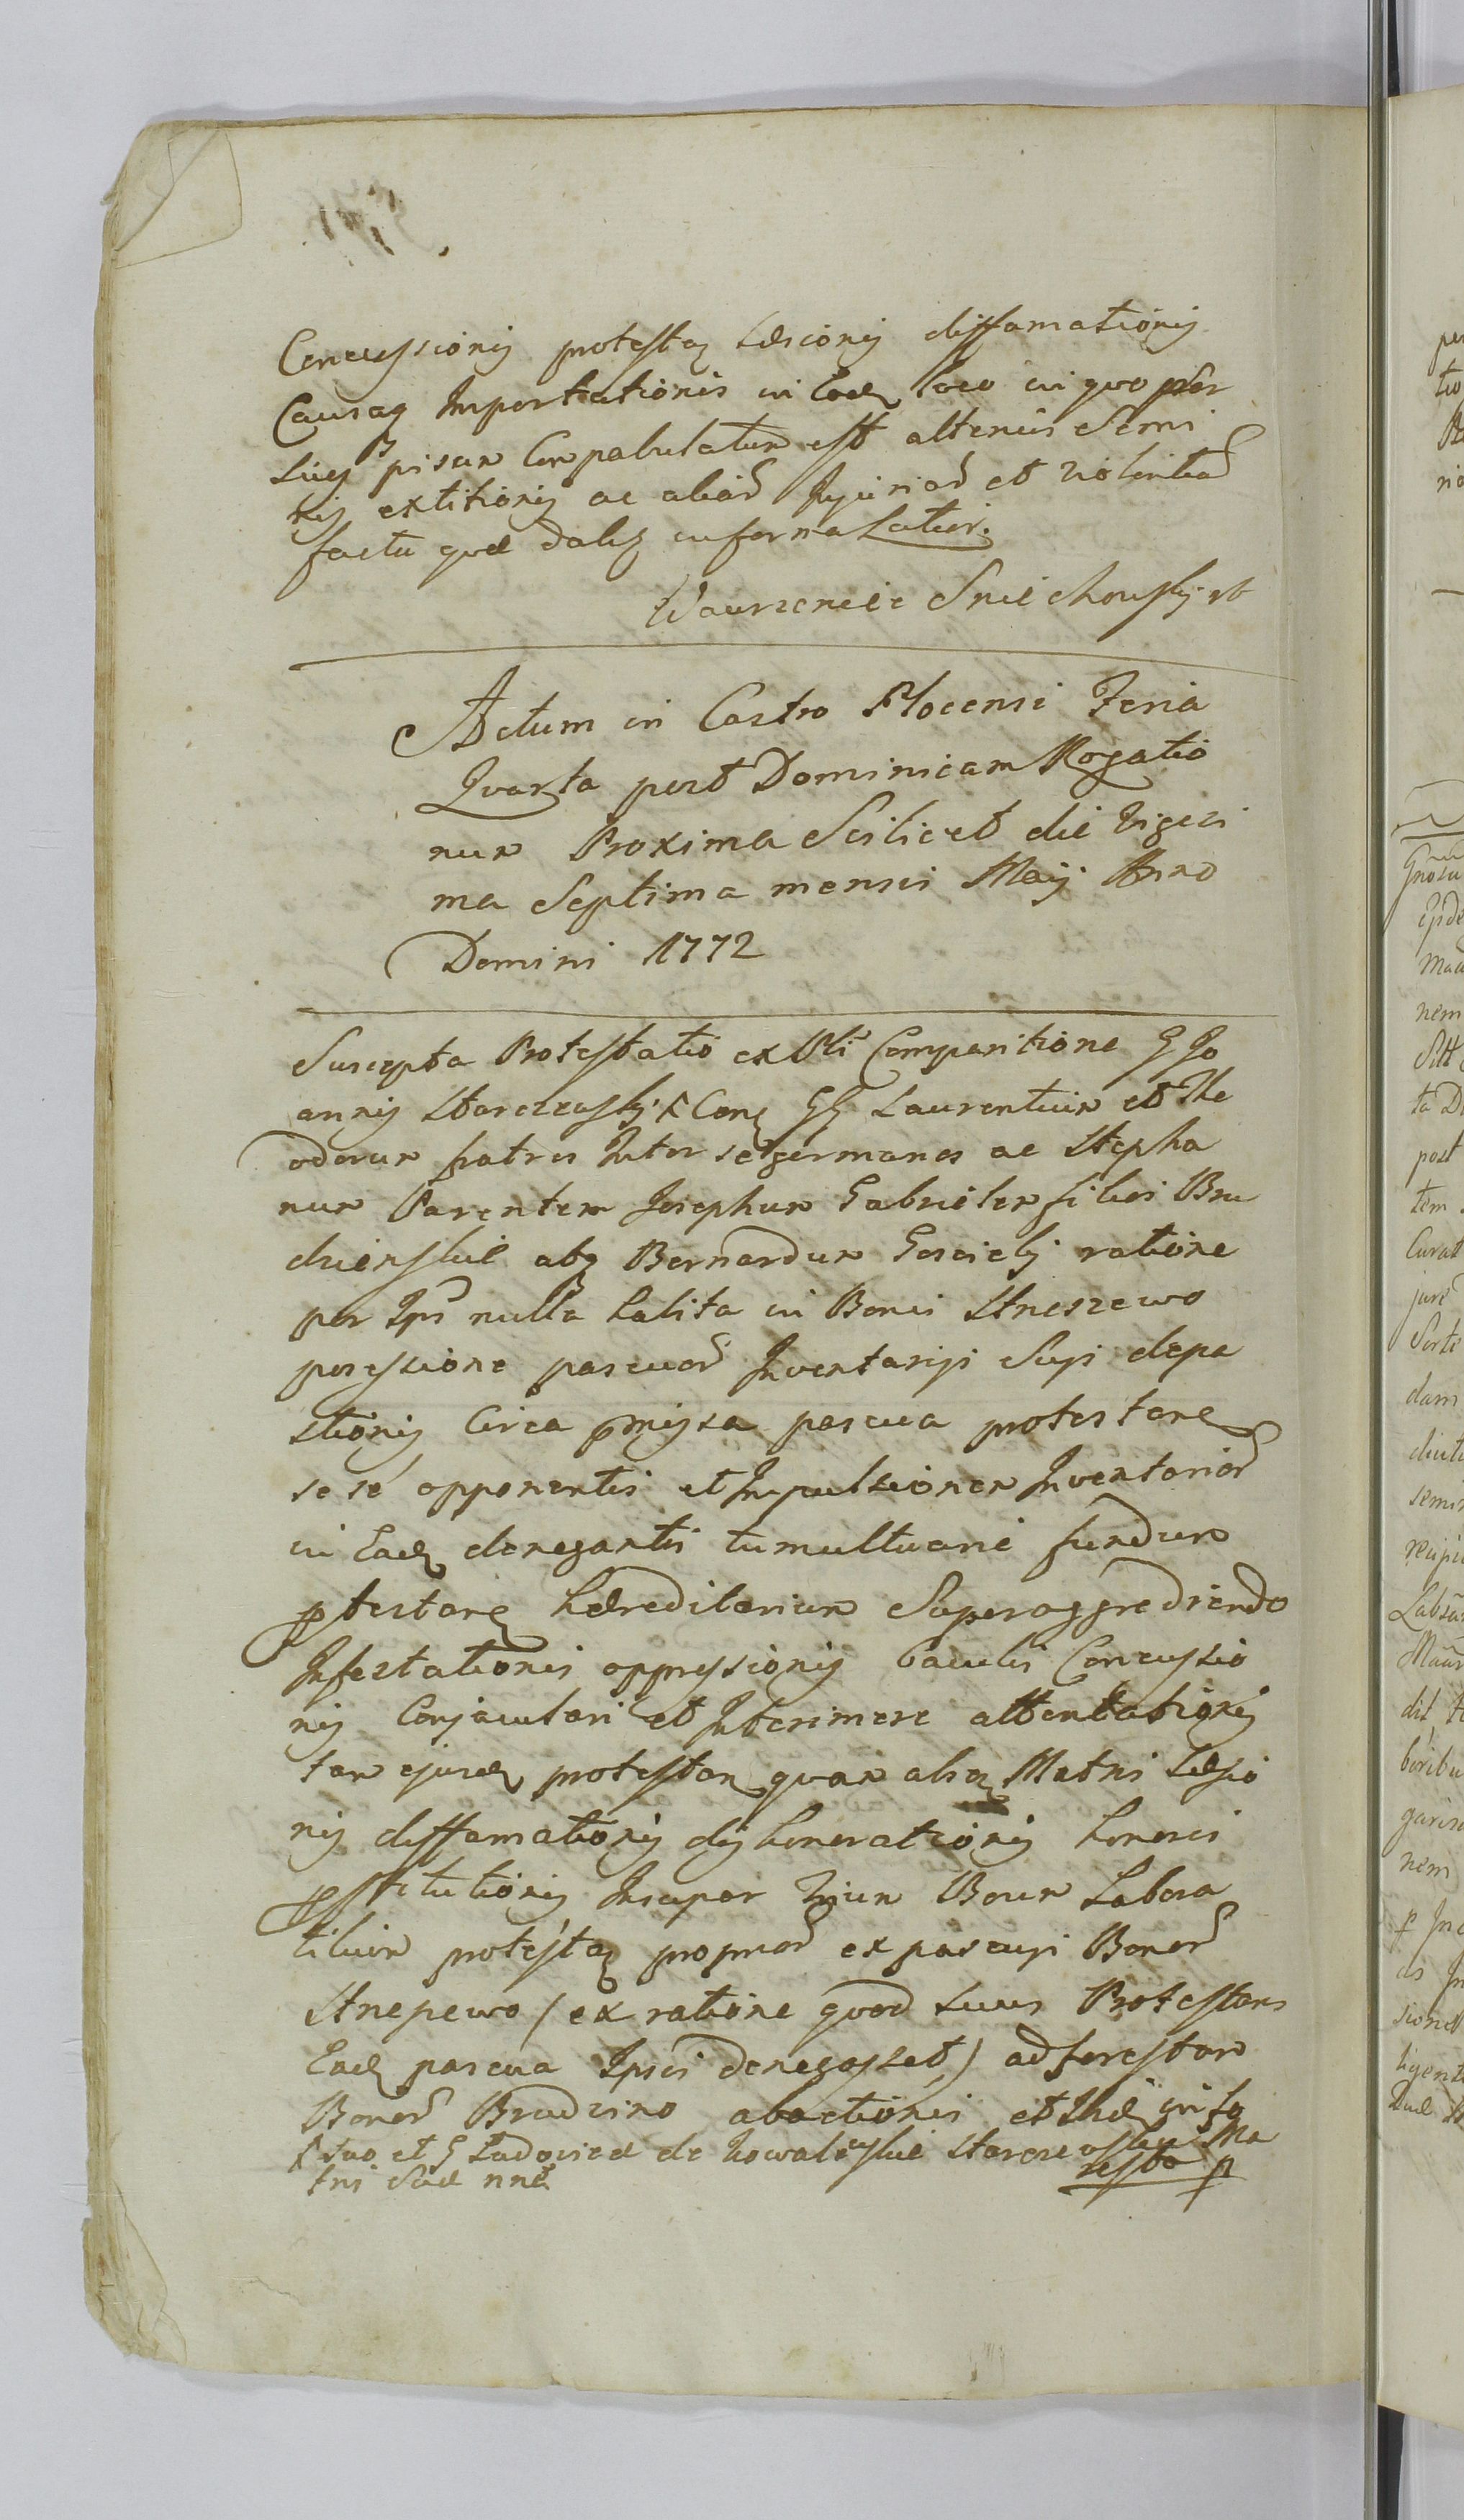 Concussionis protestan Læsionis diffamationis
Causaq Importationis in Eodem loco in quo per
suem pisum Conpabulatum est alterius Semi
nis extitionis ac aliar Injuriar et violentiar
factu quæ dalsz in forma Latiori.
Wawrzeniec Sniechowski
Actum in Castro Plocensi Feria
Quarta post Dominicam Rogatio
num Proxima Scilicet die vigesi
ma Septima mensis Maij Anno
Domini 1772
Suscepta Protestatio ex Psli Comparitione G Jo
annis Starczewskj ꝉ Con GG Laurentium et The
odorum fratres Inter se germanos ac Stepha
num Parentem Josephum Gabrielem filios Bru
dzinskie abq Bernardum Goscickj ratione
per Ips nulla habita in Bonis Strzeszewo
possessione pascuor Inventarijs Suis depa
stionis Circa pmissa pascua protestane
se se opponentis et Impulsionem Inventarior
in Eadem denegantis tumultuarie fundum
ptestane hæreditarium Superaggrediendo
Infestationis oppressionis baculis Concussio
nis Conjaculari et Interimere attentationis
tam ejusdem protestan quam aliaq Matris læsio
nis diffamationis dishonorationis honoris
pstitutionis Insuper trium Boum Labora
tilium protestan proprior ex pascuis Bonor
Strzeszewo / ex ratione quod suus Protestans
Eadem pascua Ipsis denegasset, / ad forestam
Bonor Brudzino abactionis et Ibidem in fo
ꝉ suo et G Ludovicæ de Kowalewskie Starczewski Ma
tris Suæ nne
resta p